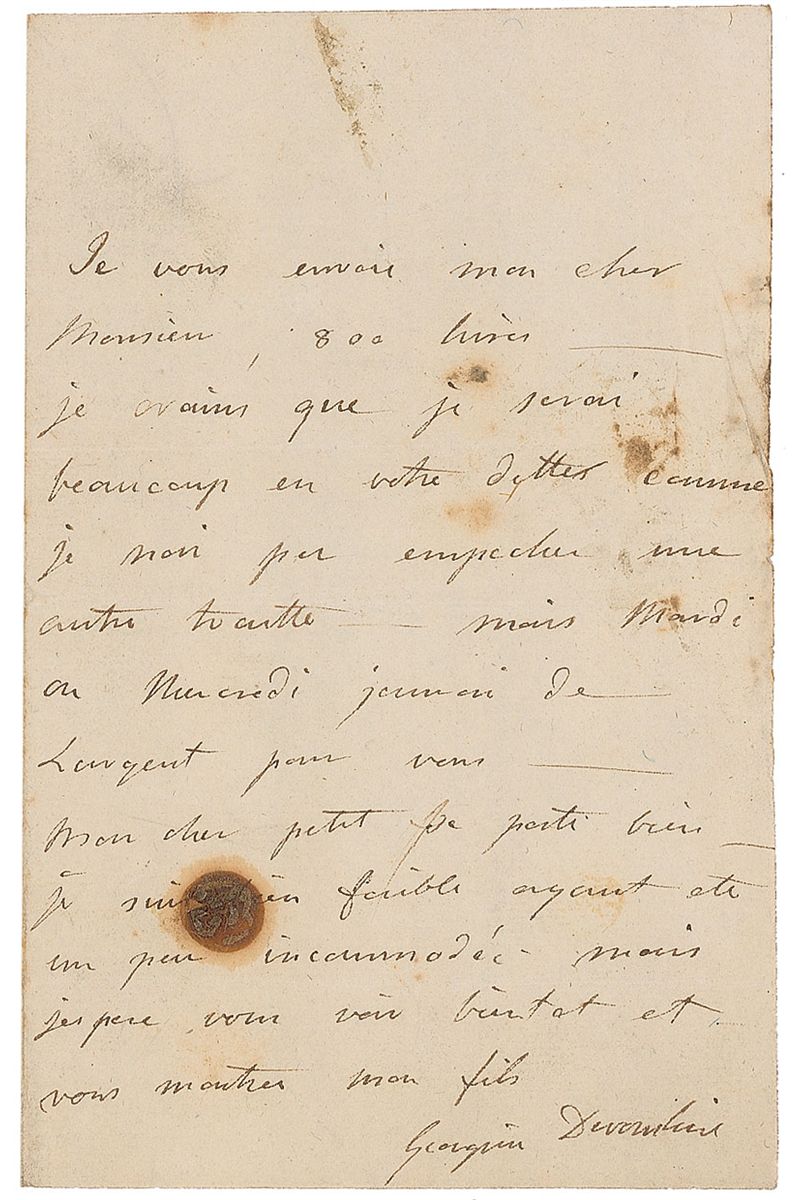 Je vous envoie mon cher
Monsieu, 800 livres —
je crains que je serai
beaucoup en votre dettes comme
je nai pu empecher une
autre traitte — mais Mardi
ou Mercredi jaurrai de
Largent pour vous —
Mon cher petit se porte bien —
je suis bien faible ayant ete
un peu incommodée - mais
jespere vous voir bientot et
vous montrer mon fils
Georgina Devonshire